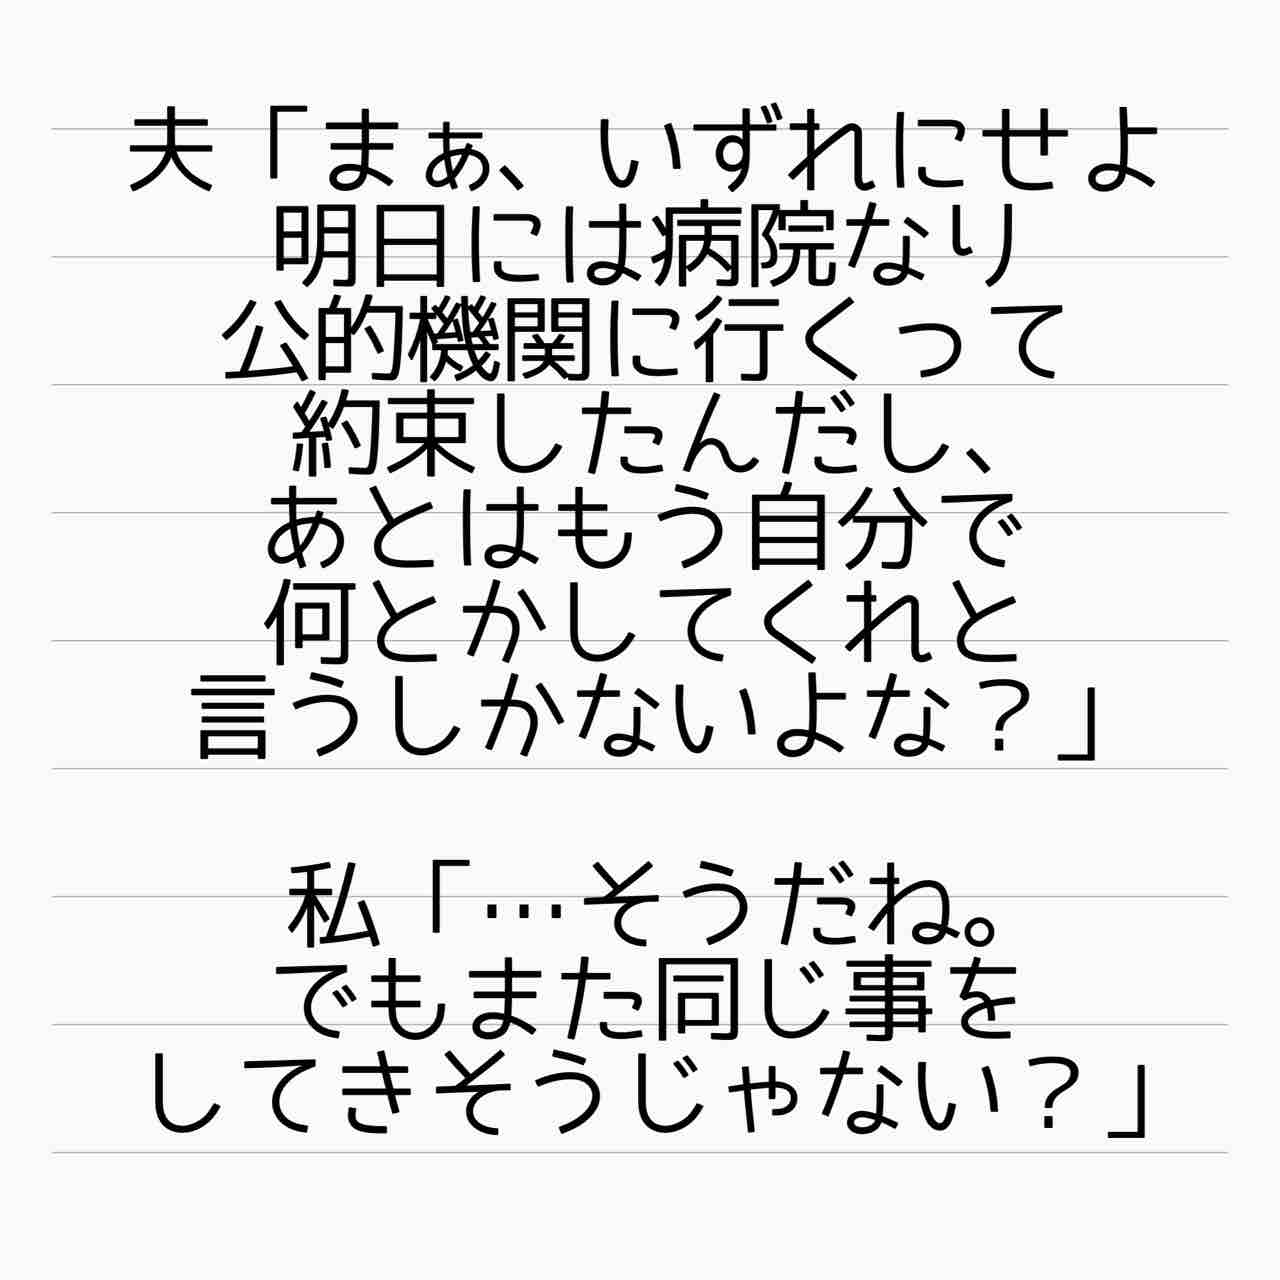 夫「まぁ、いずれにせよ
明日には病院なり
公的機関に行くって
約束したんだし、
あとはもう自分で
何とかしてくれと
言うしかないよな？」
私「…そうだね。
でもまた同じ事を
してきそうじゃない？」